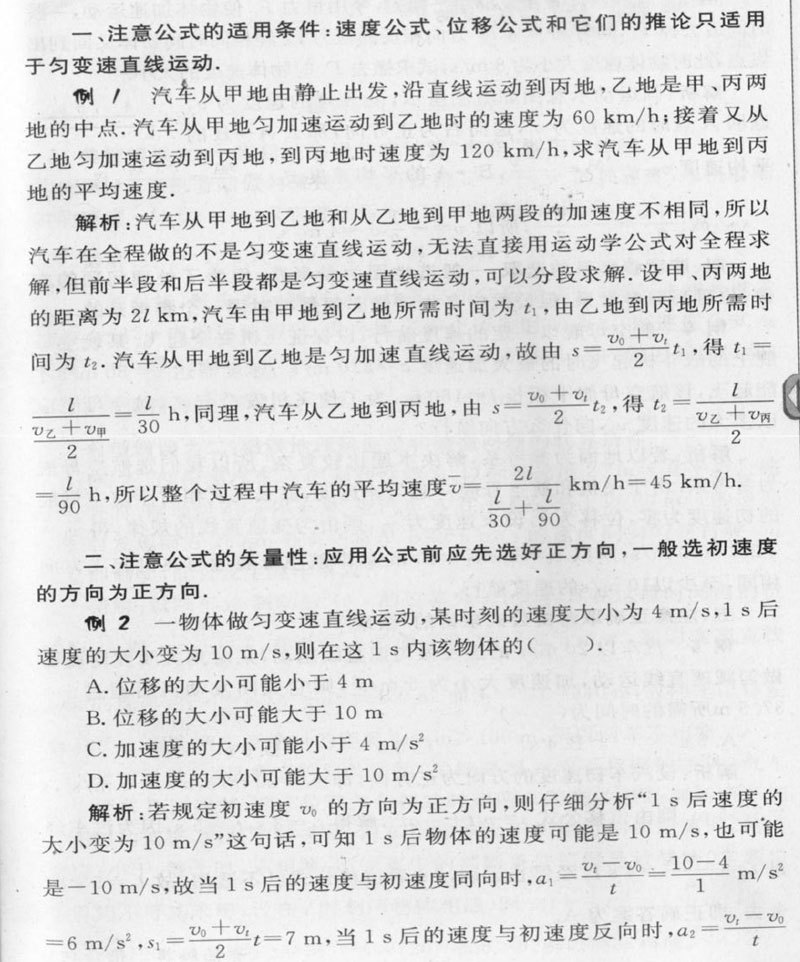 一、注意公式的适用条件:速度公式、位移公式和它们的推论只适用
于匀变速直线运动.
例 1 汽车从甲地由静止出发,沿直线运动到丙地,乙地是甲、丙两
地的中点.汽车从甲地匀加速运动到乙地时的速度为 60 km/h;接着又从
乙地匀加速运动到丙地,到丙地时速度为 120 km/h,求汽车从甲地到丙
地的平均速度.
解析:汽车从甲地到乙地和从乙地到甲地两段的加速度不相同,所以
汽车在全程做的不是匀变速直线运动,无法直接用运动学公式对全程求
解,但前半段和后半段都是匀变速直线运动,可以分段求解.设甲、丙两地
的距离为 2l km,汽车由甲地到乙地所需时间为 t₁,由乙地到丙地所需时
间为 t₂.汽车从甲地到乙地是匀加速直线运动,故由 s=(v₀+vₜ)/2 t₁,得 t₁=
l/((v乙+v甲)/2)=l/30 h,同理,汽车从乙地到丙地,由 s=(v₀+vₜ)/2 t₂,得 t₂=l/((v乙+v丙)/2)
=l/90 h,所以整个过程中汽车的平均速度v̄=2l/(l/30+l/90) km/h=45 km/h.
二、注意公式的矢量性:应用公式前应先选好正方向,一般选初速度
的方向为正方向.
例 2 一物体做匀变速直线运动,某时刻的速度大小为 4 m/s,1 s 后
速度的大小变为 10 m/s,则在这 1 s 内该物体的( ).
A. 位移的大小可能小于 4 m
B. 位移的大小可能大于 10 m
C. 加速度的大小可能小于 4 m/s²
D. 加速度的大小可能大于 10 m/s²
解析:若规定初速度 v₀ 的方向为正方向,则仔细分析“1 s 后速度的
大小变为 10 m/s”这句话,可知 1 s 后物体的速度可能是 10 m/s,也可能
是-10 m/s,故当 1 s 后的速度与初速度同向时,a₁=(vₜ-v₀)/t=(10-4)/1 m/s²
=6 m/s²,s₁=(v₀+vₜ)/2 t=7 m,当 1 s 后的速度与初速度反向时,a₂=(vₜ-v₀)/t